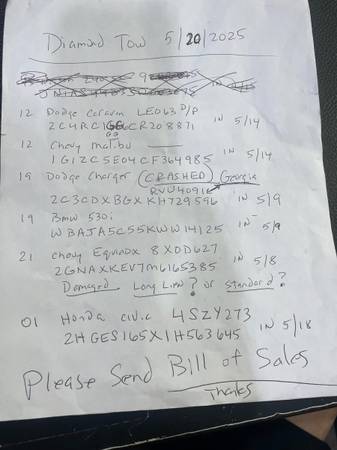 Diamond Tow 5/20/2025
12 Dodge Caravan LE063 D/P
2C4RC1GG6CR208871 IN 5/14
GG
12 Chevy malibu
1G1ZC5E04CF364985 IN 5/14
19 Dodge Charger (CRASHED) Georgia
RVU4091
2C3CDXBGXKH729596 IN 5/9
19 Bmw 530i
WBAJA5C55KWW14125 IN 5/9
21 Chevy Equinox 8X0D627
2GNAXKEV7M6165385 IN 5/8
Damaged Long Lien? or Standard?
01 Honda civic 4SZY273
2HGES165X1H563645 IN 5/18
Please Send Bill of Sales
Thanks